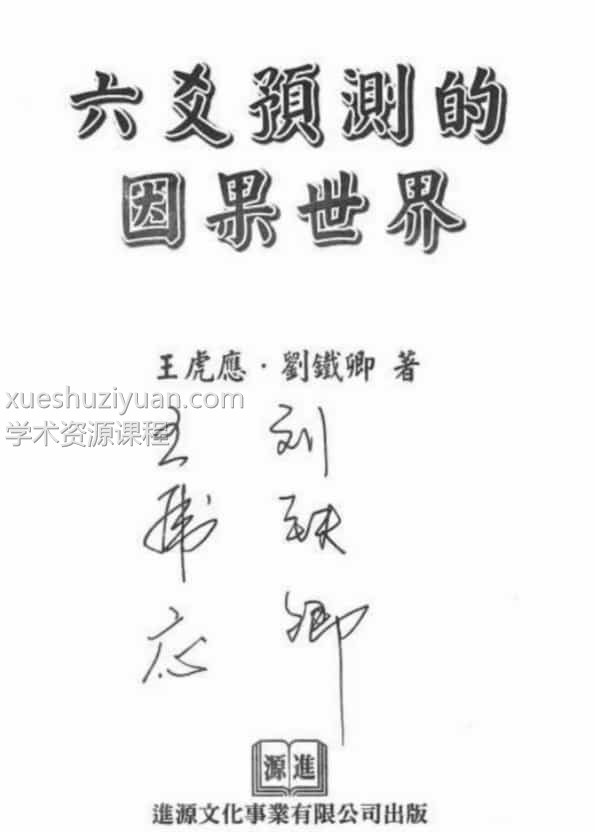 六爻預測的
因果世界
王虎應·劉鐵卿 著
xueshuziyuan.com
学术资源课程
王虎应
刘铁卿
源進
進源文化事業有限公司出版